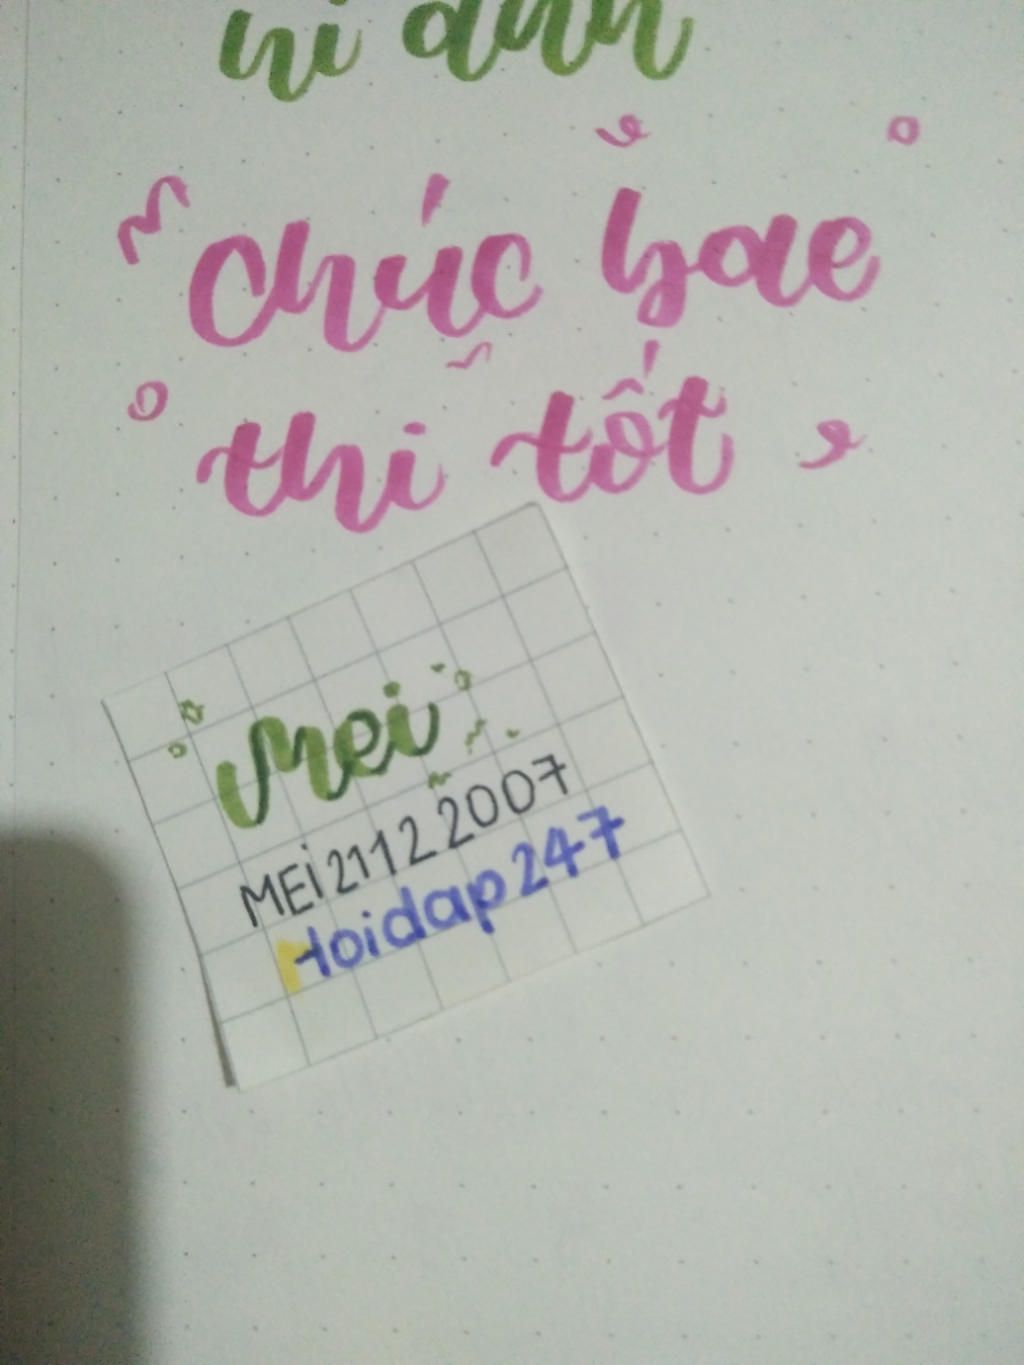 chúc bae
thi tốt
Mei
MEi21122007
Hoidap247